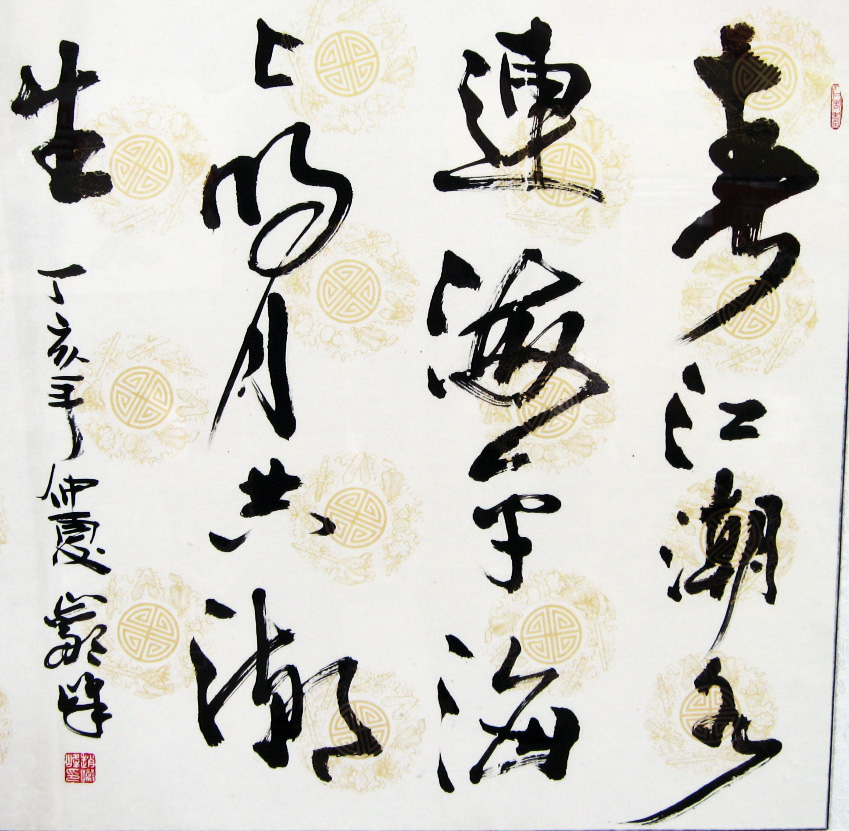 春江潮水
連海平海
上明月共潮
生
丁亥年仲夏